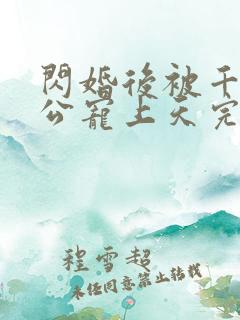 閃婚後被千
公寵上天完
程雪超
未任同意禁止转载